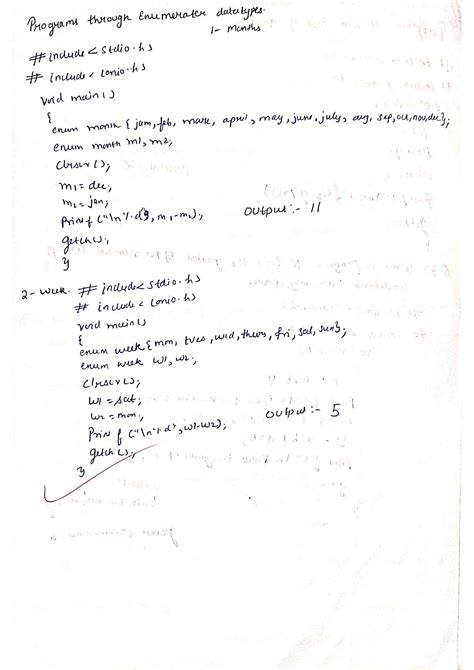 Programs through Enumerater datatypes.
1- Months
#include<stdio.h>
# include<conio.h>
void main()
{
enum month {jan, feb, mare, april, may, june, july, aug, sep, oct, nov, dec};
enum month m1, m2;
Clrscr();
m1 = dec;
m2 = jan;
Printf ("\n%d", m1-m2);
output:- 11
getch();
}
2- Week. #include<stdio.h>
# include<conio.h>
void main()
{
enum week{mon, tues, wed, thurs, fri, sat, sun};
enum week w1, w2;
Clrscr();
w1 = sat;
w2 = mon;
Printf ("\n%d", w1-w2);
output:- 5
getch();
}